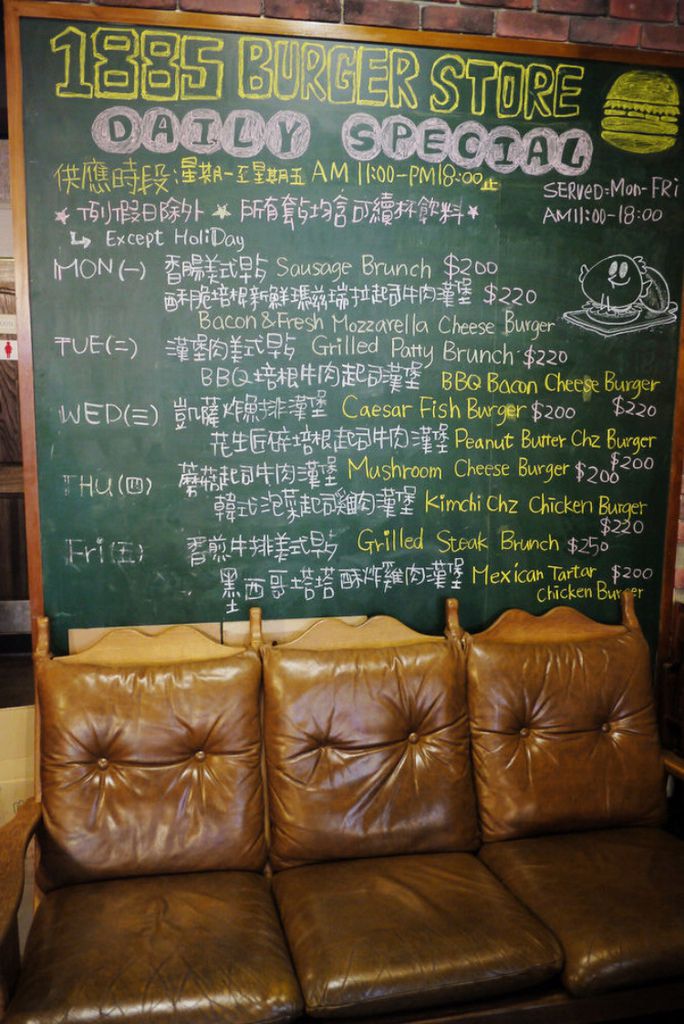 1885 BURGER STORE
DAILY SPECIAL
供應時段:星期一至星期五 AM 11:00-PM18:00止
SERVED:Mon-Fri
AM11:00-18:00
★例假日除外 ★ 所有套餐均含可續杯飲料★
↳ Except HoliDay
MON(一) 香腸美式早午 Sausage Brunch $200
酥脆培根新鮮瑪茲瑞拉起司牛肉漢堡 $220
Bacon & Fresh Mozzarella Cheese Burger
TUE(二) 漢堡肉美式早午 Grilled Patty Brunch $220
BBQ培根牛肉起司漢堡 BBQ Bacon Cheese Burger
$220
WED(三) 凱薩炸魚排漢堡 Caesar Fish Burger $200
花生匠碎培根起司牛肉漢堡 Peanut Butter Chz Burger
$200
THU(四) 蘑菇起司牛肉漢堡 Mushroom Cheese Burger $200
韓式泡菜起司雞肉漢堡 Kimchi Chz Chicken Burger
$220
Fri(五) 香煎牛排美式早午 Grilled Steak Brunch $250
墨西哥塔塔酥炸雞肉漢堡 Mexican Tartar $200
Chicken Burger